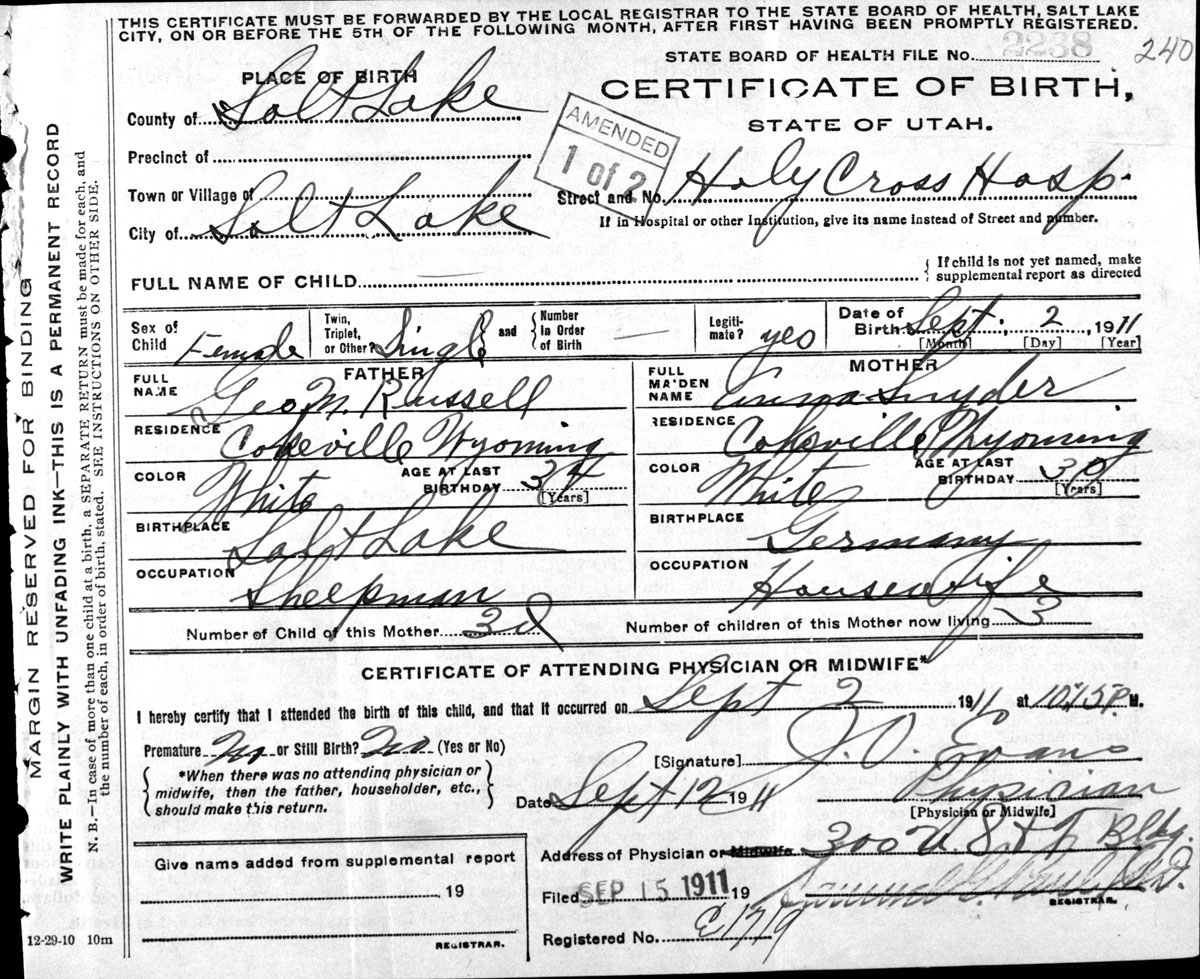 THIS CERTIFICATE MUST BE FORWARDED BY THE LOCAL REGISTRAR TO THE STATE BOARD OF HEALTH, SALT LAKE
CITY, ON OR BEFORE THE 5TH OF THE FOLLOWING MONTH, AFTER FIRST HAVING BEEN PROMPTLY REGISTERED.
STATE BOARD OF HEALTH FILE No. 2238
240
PLACE OF BIRTH
CERTIFICATE OF BIRTH,
STATE OF UTAH.
County of Salt Lake
AMENDED
1 of 2
Precinct of
Town or Village of
Street and No. Holy Cross Hosp.
If in Hospital or other Institution, give its name instead of Street and number.
City of Salt Lake
FULL NAME OF CHILD
If child is not yet named, make
supplemental report as directed
Sex of Child Female
Twin, Triplet, or Other? Single
and Number in Order of Birth —
Legitimate? yes
Date of Birth Sept. 2, 1911
[Month] [Day] [Year]
FATHER
FULL NAME Geo M. Russell
RESIDENCE Cokeville Wyoming
COLOR White
AGE AT LAST BIRTHDAY 34
[Years]
BIRTHPLACE Salt Lake
OCCUPATION Sheepman
MOTHER
FULL MAIDEN NAME Emma Snyder
RESIDENCE Cokeville Wyoming
COLOR White
AGE AT LAST BIRTHDAY 30
[Years]
BIRTHPLACE Germany
OCCUPATION Housewife
Number of Child of this Mother 3d
Number of children of this Mother now living 3
CERTIFICATE OF ATTENDING PHYSICIAN OR MIDWIFE*
I hereby certify that I attended the birth of this child, and that it occurred on Sept 2 1911 at 10:15 P. M.
Premature No or Still Birth? No (Yes or No)
*When there was no attending physician or
midwife, then the father, householder, etc.,
should make this return.
[Signature] J. O. Evans
Date Sept 12 1911
Physician
[Physician or Midwife]
Address of Physician or Midwife 300 Bldg.
Filed SEP 15 1911 19
REGISTRAR.
Registered No. E1719
Give name added from supplemental report
19
REGISTRAR.
12-29-10 10m
MARGIN RESERVED FOR BINDING
WRITE PLAINLY WITH UNFADING INK—THIS IS A PERMANENT RECORD
N. B.—In case of more than one child at a birth, a SEPARATE RETURN must be made for each, and
the number of each, in order of birth, stated. SEE INSTRUCTIONS ON OTHER SIDE.